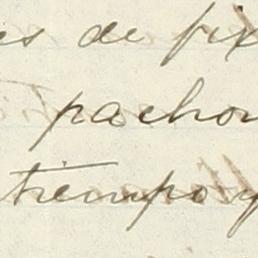 es de fix
pachor
tiempo y